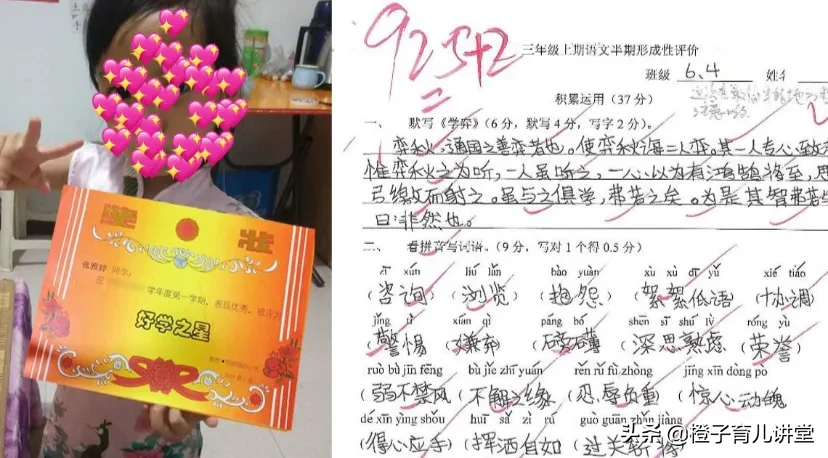 奖 状
张雅婷 同学:
学年度第一学期,表现优秀,被评为
好学之星
92.5+2
三年级上期语文半期形成性评价
班级 6.4 姓名
积累运用(37分)
一、 默写《学弈》(6分,默写4分,写字2分)。
弈秋,通国之善弈者也。使弈秋诲二人弈。其一人专心致
惟弈秋之为听,一人虽听之,一心以为有鸿鹄将至,思
弓缴而射之。虽与之俱学,弗若之矣。为是其智弗若
曰:非然也。
二、 看拼音写词语。(9分,写对1个得0.5分)
zī xún liú lǎn bào yuàn xù xù dī yǔ xié tiáo
(咨询) (浏览) (抱怨) (絮絮低语) (协调)
jǐng tì xián qì páng bó shēn sī shú lǜ róng yù
(警惕) (嫌弃) (磅礴) (深思熟虑) (荣誉)
ruò bù jīn fēng bù jiě zhī yuán rěn rǔ fù zhòng jīng xīn dòng pò
(弱不禁风) (不解之缘) (忍辱负重) (惊心动魄)
dé xīn yìng shǒu huī sǎ zì rú guò guān zhǎn jiàng
(得心应手) (挥洒自如) (过关斩将)
头条 @橙子育儿讲堂